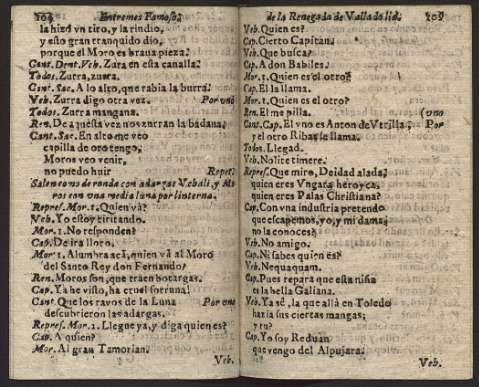 104 Entremes Famoso,
la hizo vn tiro, y la rindio,
y esto gran tranquido dio,
porque el Moro es braua pieza.
Cant. Dent. Veh. Zurra en esta canalla.
Todos. Zurra, zurra.
Cant. Sac. A lo alto, que rabia la burra.
Veh. Zurra digo otra vez. Por uno
Todos. Zurra mangana.
Ren. De aquesta vez nos zurran la badana.
Cant. Sac. En alto me veo
capilla de oro tengo,
Moros veo venir,
no puedo huir Repet.
Salen como de ronda con adargas Vehali, y Mo
ros con una media luna por linterna.
Repres. Mor. 1. Quien và?
Veh. Yo estoy tiritando.
Mor. 1. No responden?
Cap. De ira lloro.
Mor. 1. Alumbra acà, quien và al Moro
del Santo Rey don Fernando?
Ren. Moros son, que traen botargas.
Cap. Ya he visto, ha cruel fortuna!
Cant. Que los rayos de la Luna Por one
descubrieron las adargas.
Repres. Mor. 1. Llegue ya, y diga quien es?
Cap. A quien?
Mor. Al gran Tamorlan.
Veh.
de la Renegada de Valladolid. 105
Veh. Quien es?
Cap. Cierto Capitan.
Veh. Que busca?
Cap. A don Babiles.
Mor. 1. Quien es el otro?
Cap. El la llama.
Mor. 1. Quien es el otro?
Ren. El me pilla. (uno
Cant. Cap. El vno es Anton de Vtrilla, Por
y el otro Ribas se llama.
Todos. Llegad.
Veh. Nolite timere.
Repres. Que miro, Deidad alada,
quien eres Vngara heroyca,
quien eres Palas Christiana?
Cap. Con vna industria pretendo
que escapemos, yo, y mi dama,
no la conoces?
Veh. No amigo.
Cap. Ni sabes quien es?
Veh. Nequaquam.
Cap. Pues repara que esta niña
es la bella Galiana.
Veh. Ya sè, la que allà en Toledo
hazia sus ciertas mangas;
y tu?
Cap. Yo soy Reduan
que vengo del Alpujara.
Veh.